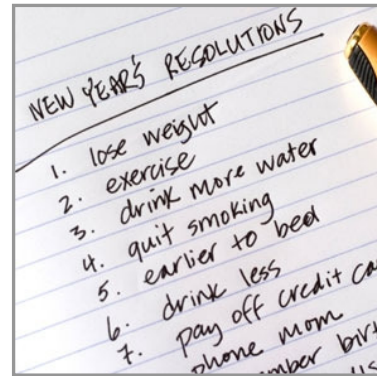 NEW YEAR'S RESOLUTIONS
1. lose weight
2. exercise
3. drink more water
4. quit smoking
5. earlier to bed
6. drink less
7. pay off credit ca
phone mom